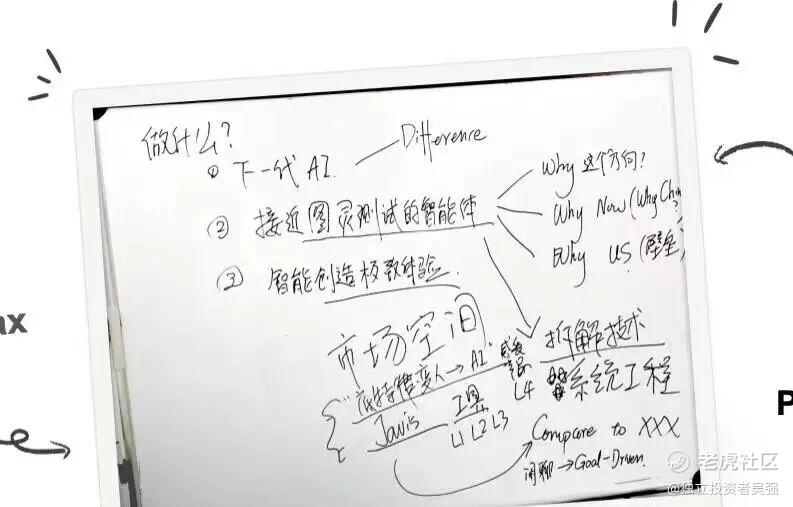 做什么?
① 下一代 AI. Difference
② 接近图灵测试的智能体
Why 这个方向?
Why Now (Why Ch
Why US (壁垒)
③ 智能创造极致体验.
市场空间
拆解技术
变人→AI"
L4 系统工程
Javis 工具
L1 L2 L3
Compare to XXX
闲聊→Goal-Driven.
ax
P
老虎社区
@独立投资者吴强